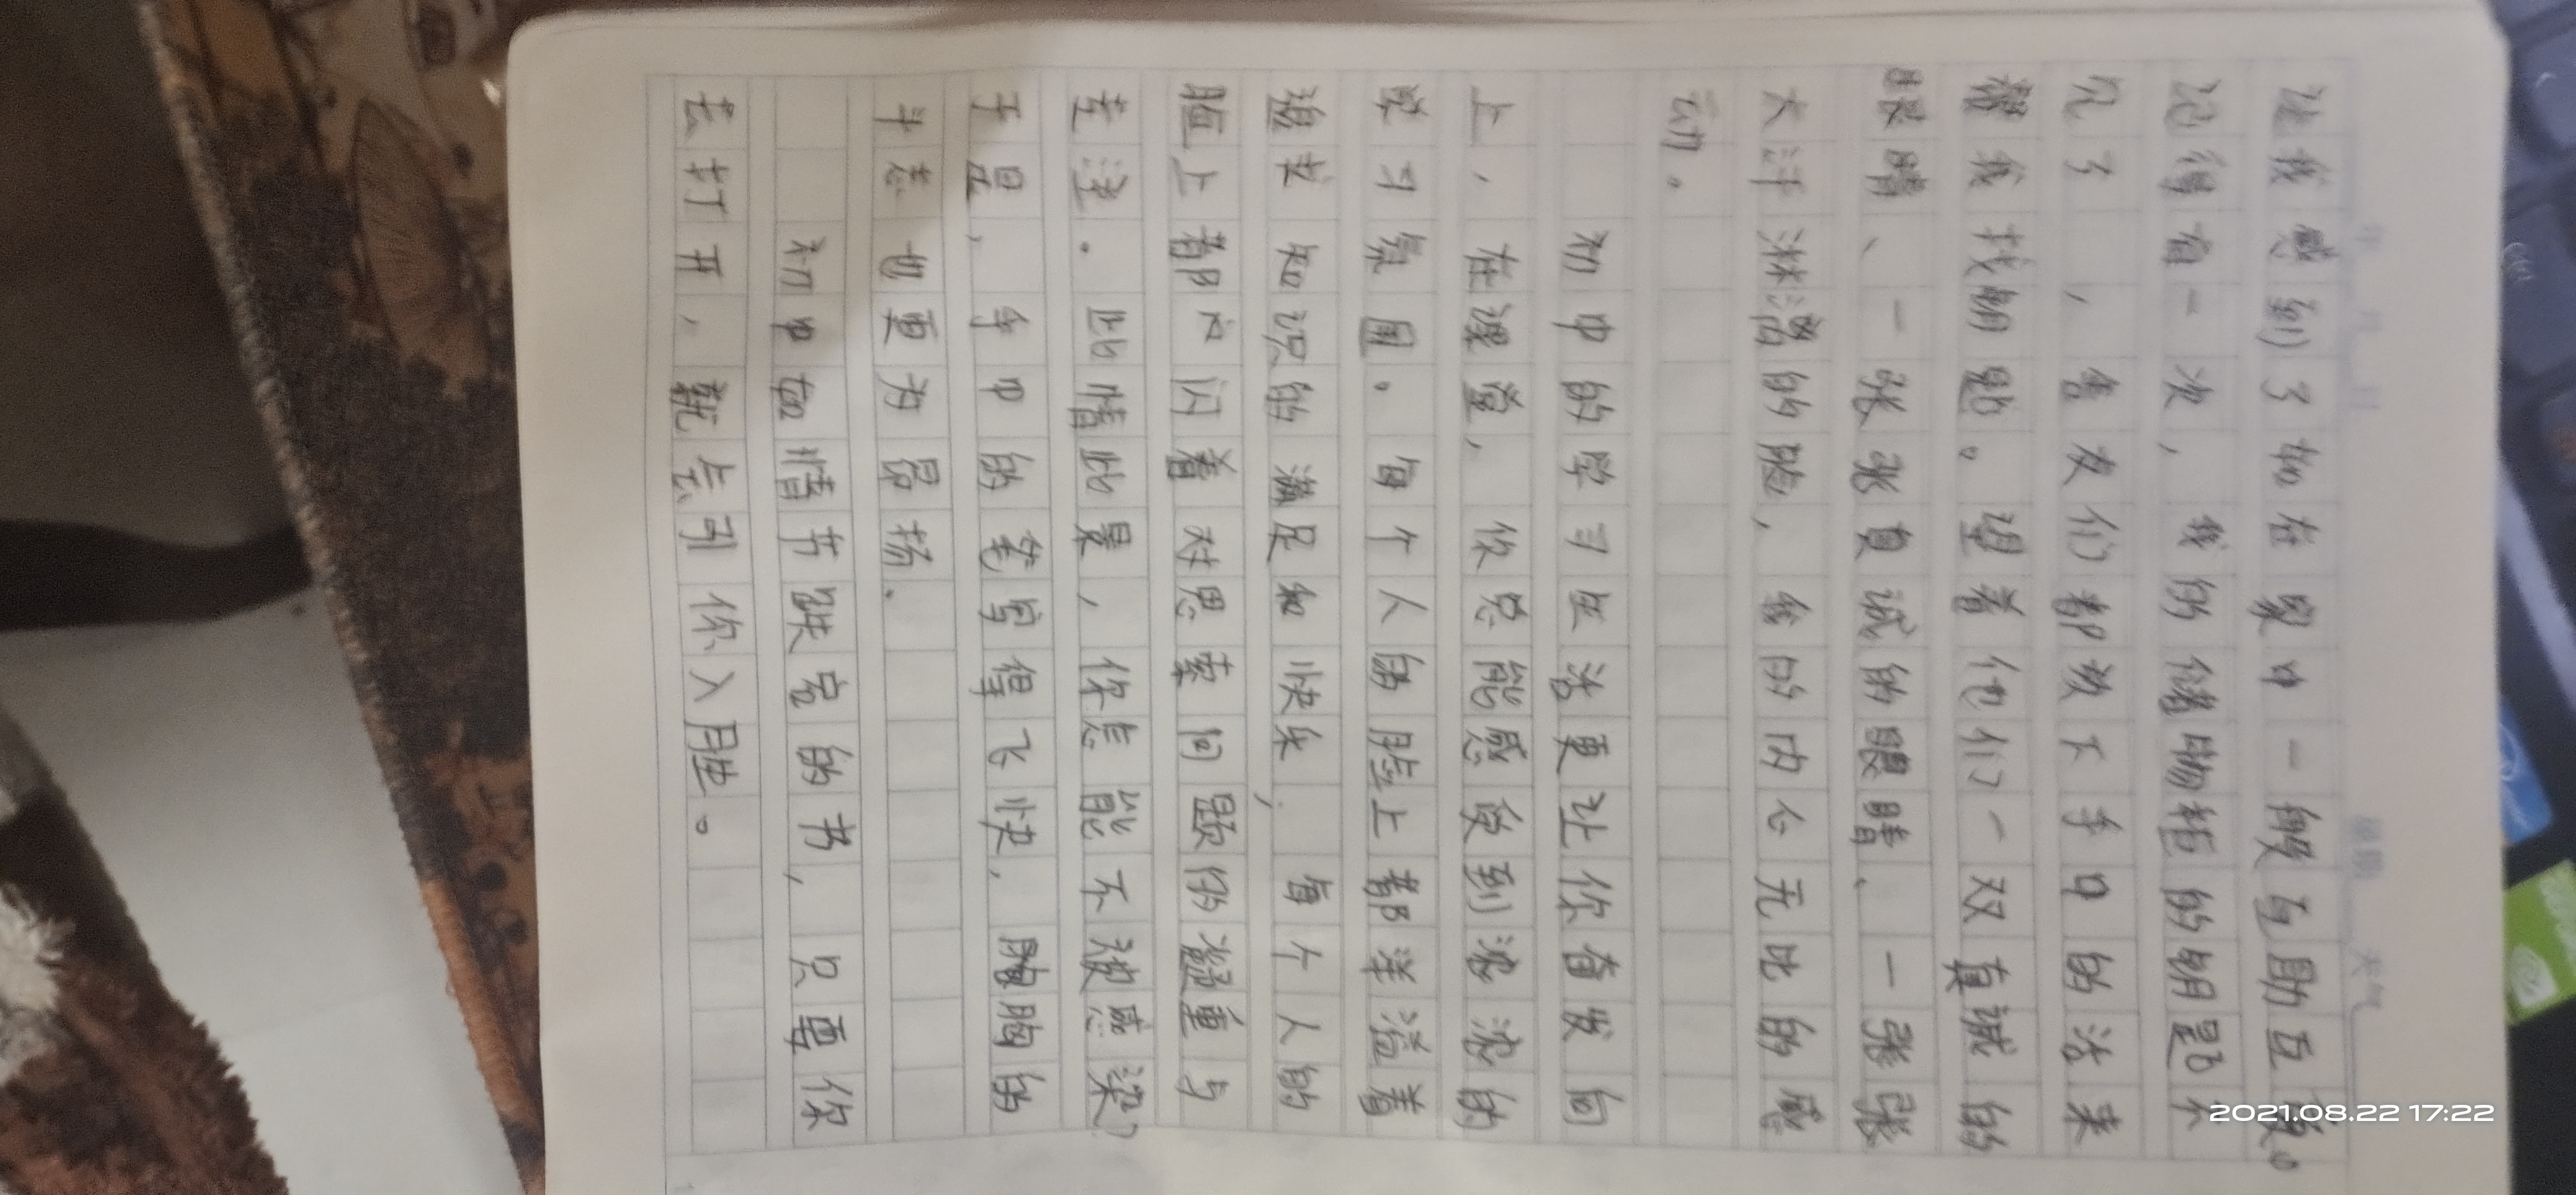 让我感到了如在家中一般互助互爱。
记得有一次，我的储物柜的钥匙不
见了，舍友们都放下手中的活来
帮我找钥匙。望着他们一双真诚的
眼睛、一张张真诚的眼睛、一张张
大汗淋漓的脸，给的内心无比的感
动。
初中的学习生活更让你奋发向
上，在课堂，你总能感受到浓浓的
学习氛围。每个人的脸上都洋溢着
追求知识的满足和快乐，每个人的
脸上都闪着对思索问题的凝重与
专注。此情此景，你怎能不被感染？
于是，手中的笔写得飞快，胸膛的
斗志也更为昂扬。
初中如情节跌宕的书，只要你
去打开，就会引你入胜。
年 月 日
星期 天气
2021.08.22 17:22